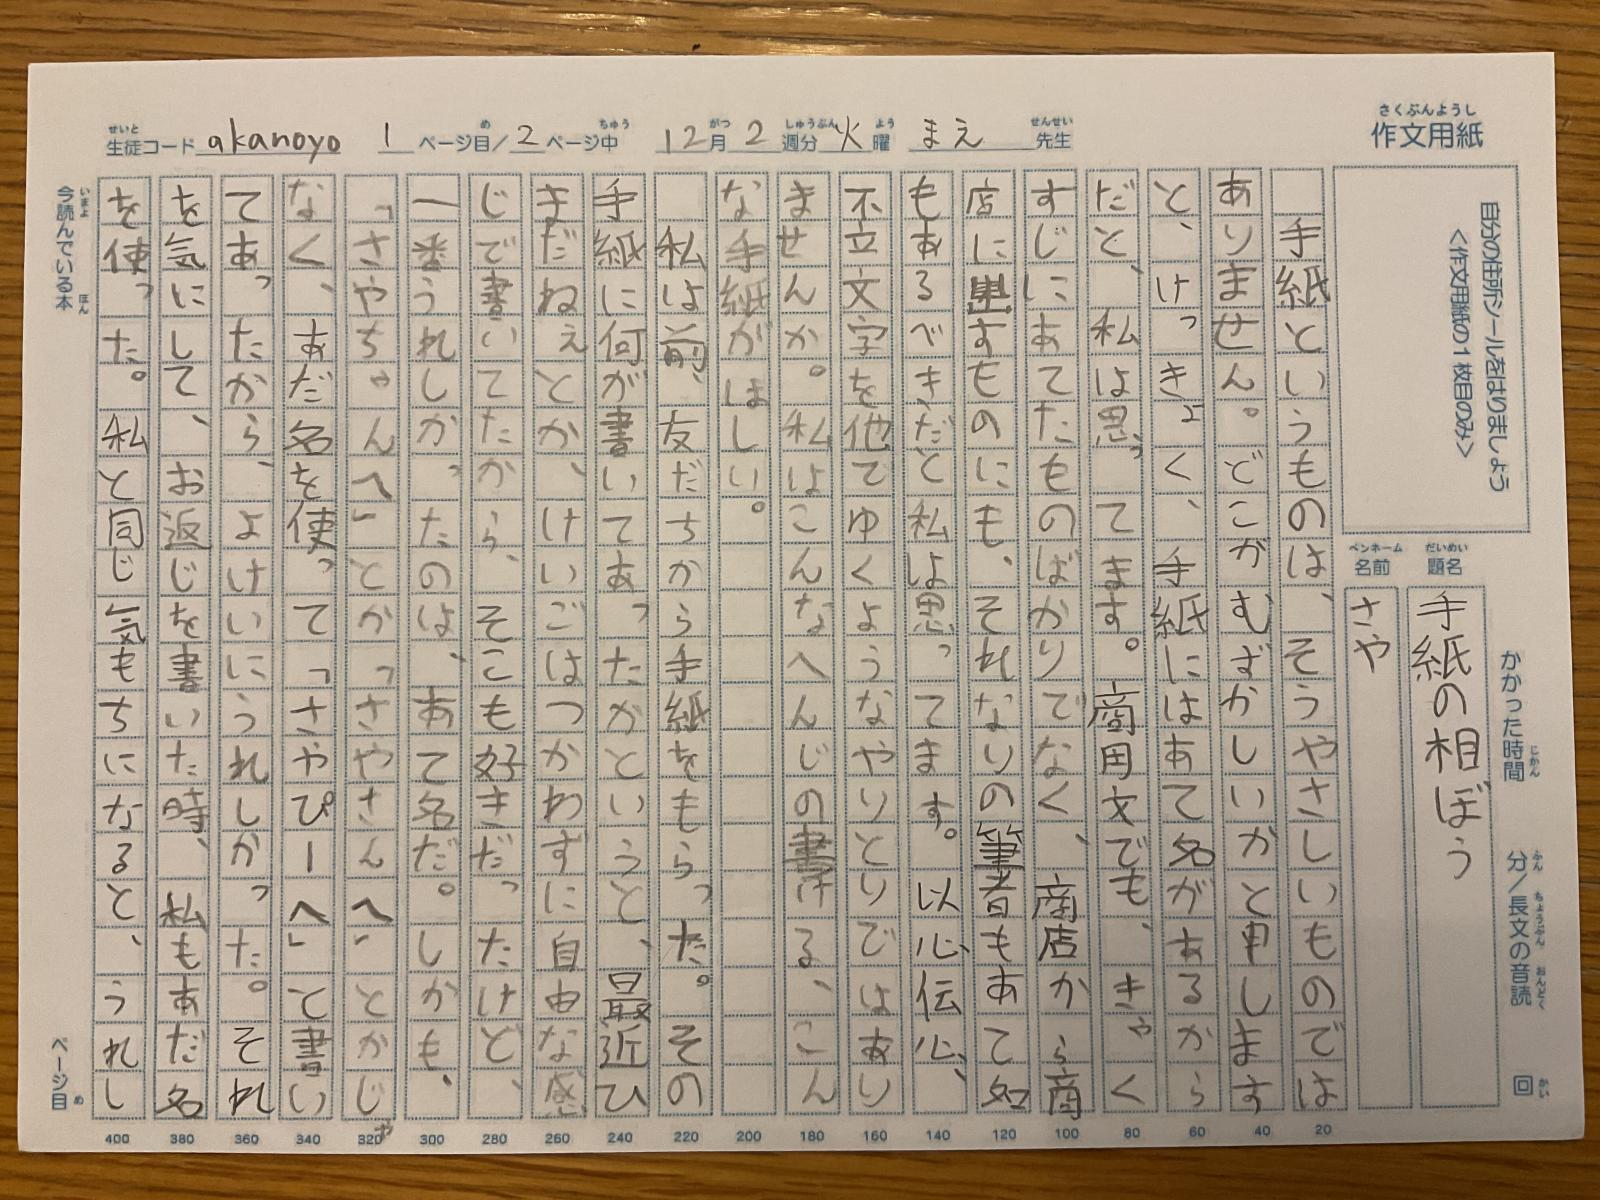 さくぶんようし
作文用紙
せいと め ちゅう がつ しゅうぶん よう せんせい
生徒コード akanoyo 1 ページ目/2 ページ中 12月 2 週分 火 曜 まえ 先生
自分の住所シールをはりましょう
<作文用紙の1枚目のみ>
かかった時間 分/長文の音読 回
じかん ふん ちょうぶん おんどく かい
だいめい
題名
手紙の相ぼう
ペンホーム
名前
さや
手紙というものは、そうやさしいものでは
ありません。どこがむずかしいかと申します
と、けっきょく、手紙にはあて名があるから
だと、私は思ってます。商用文でも、きゃく
すじにあてたものばかりでなく、商店から商
店に出すものにも、それなりの筆者もあて名
もあるべきだと私は思ってます。以心伝心、
不立文字を他でゆくようなやりとりではあり
ませんか。私はこんなへんじの書ける、こん
な手紙がほしい。
私は前、友だちから手紙をもらった。その
手紙に何が書いてあったかというと、最近ひ
まだねぇとか、けいごはつかわずに自由な感
じで書いてたから、そこも好きだったけど、
一番うれしかったのは、あて名だ。しかも、
「さやちゃんへ」とか「さやさんへ」とかじゃ
なく、あだ名を使って「さやぴーへ」と書い
てあったから、よけいにうれしかった。それ
を気にして、お返じを書いた時、私もあだ名
を使った。私と同じ気もちになると、うれし
20
40
60
80
100
120
140
160
200
220
240
260
280
300
320
340
360
380
400
いまよ ほん
今読んでいる本
ページ目
め